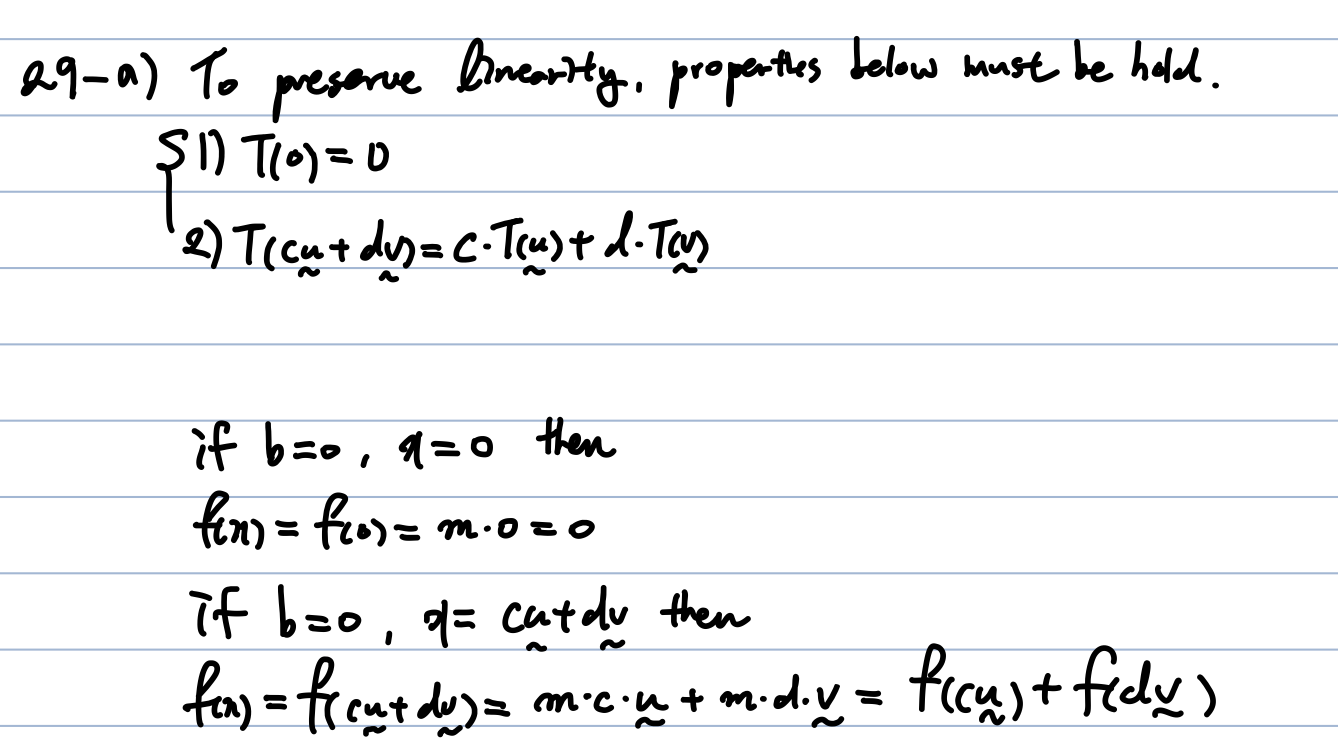 29-a) To preserve linearity, properties below must be hold.
1) T(0) = 0
2) T(cu + dv) = c·T(u) + d·T(v)
if b=0, x=0 then
f(x) = f(0) = m·0 = 0
if b=0, x= cu+dv then
f(x) = f(cu+dv) = m·c·u + m·d·v = f(cu) + f(dv)